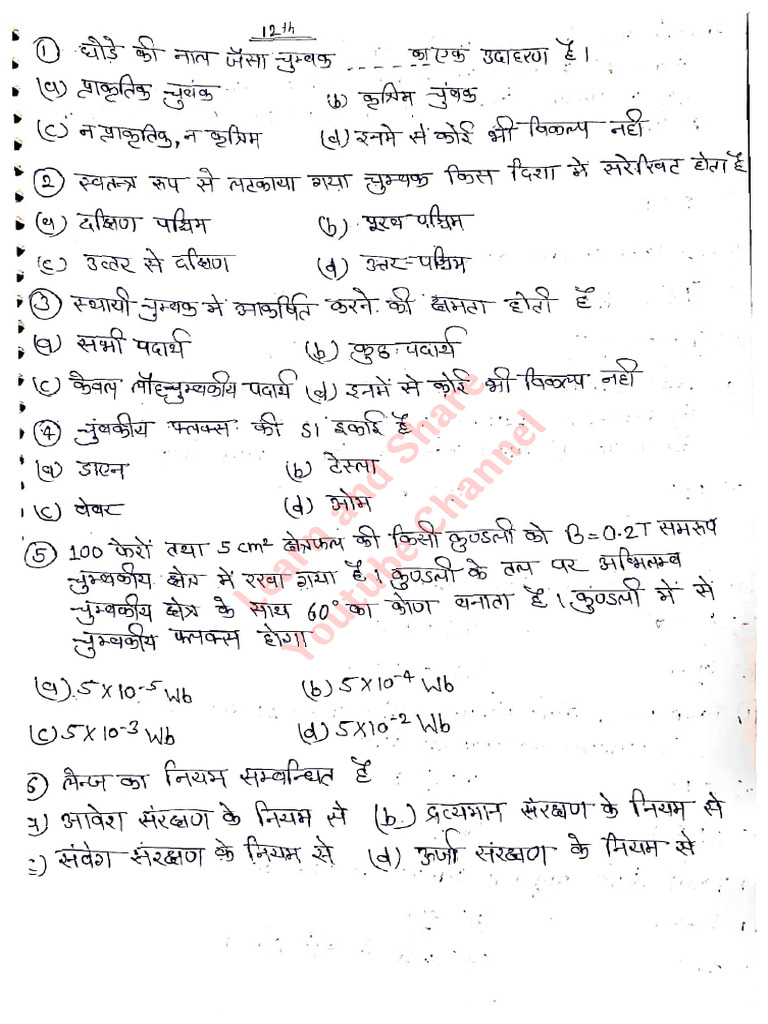 12th
① घोडे की नाल जैसा चुम्बक _ _ _ _ _ का एक उदाहरण है।
(a) प्राकृतिक चुंबक (b) कृत्रिम चुंबक
(c) न प्राकृतिक, न कृत्रिम (d) इनमे से कोई भी विकल्प नही
② स्वतन्त्र रूप से लटकाया गया चुम्बक किस दिशा मे सरेखित होता है
(a) दक्षिण पश्चिम (b) पूरब पश्चिम
(c) उत्तर से दक्षिण (d) उत्तर-पश्चिम
③ स्थायी चुम्बक मे आकर्षित करने की क्षमता होती है
(a) सभी पदार्थ (b) कुछ पदार्थ
(c) केवल लौहचुम्बकीय पदार्थ (d) इनमें से कोई भी विकल्प नही
④ चुंबकीय फ्लक्स की SI इकाई है
(a) डाएन (b) टेस्ला
(c) वेबर (d) ओम
⑤ 100 फेरों तथा 5 cm² क्षेत्रफल की किसी कुण्डली को B=0.2T समरूप
चुम्बकीय क्षेत्र में रखा गया है। कुण्डली के तल पर अभिलम्ब
चुम्बकीय क्षेत्र के साथ 60° का कोण बनाता है। कुंण्डली में से
चुम्बकीय फ्लक्स होगा
(a) 5×10⁻⁵ Wb (b) 5×10⁻⁴ Wb
(c) 5×10⁻³ Wb (d) 5×10⁻² Wb
⑥ लैन्ज का नियम सम्बन्धित है
a) आवेश संरक्षण के नियम से (b) द्रव्यमान संरक्षण के नियम से
c) संवेग संरक्षण के नियम से (d) ऊर्जा संरक्षण के नियम से
Learn and Share
Youtube Channel